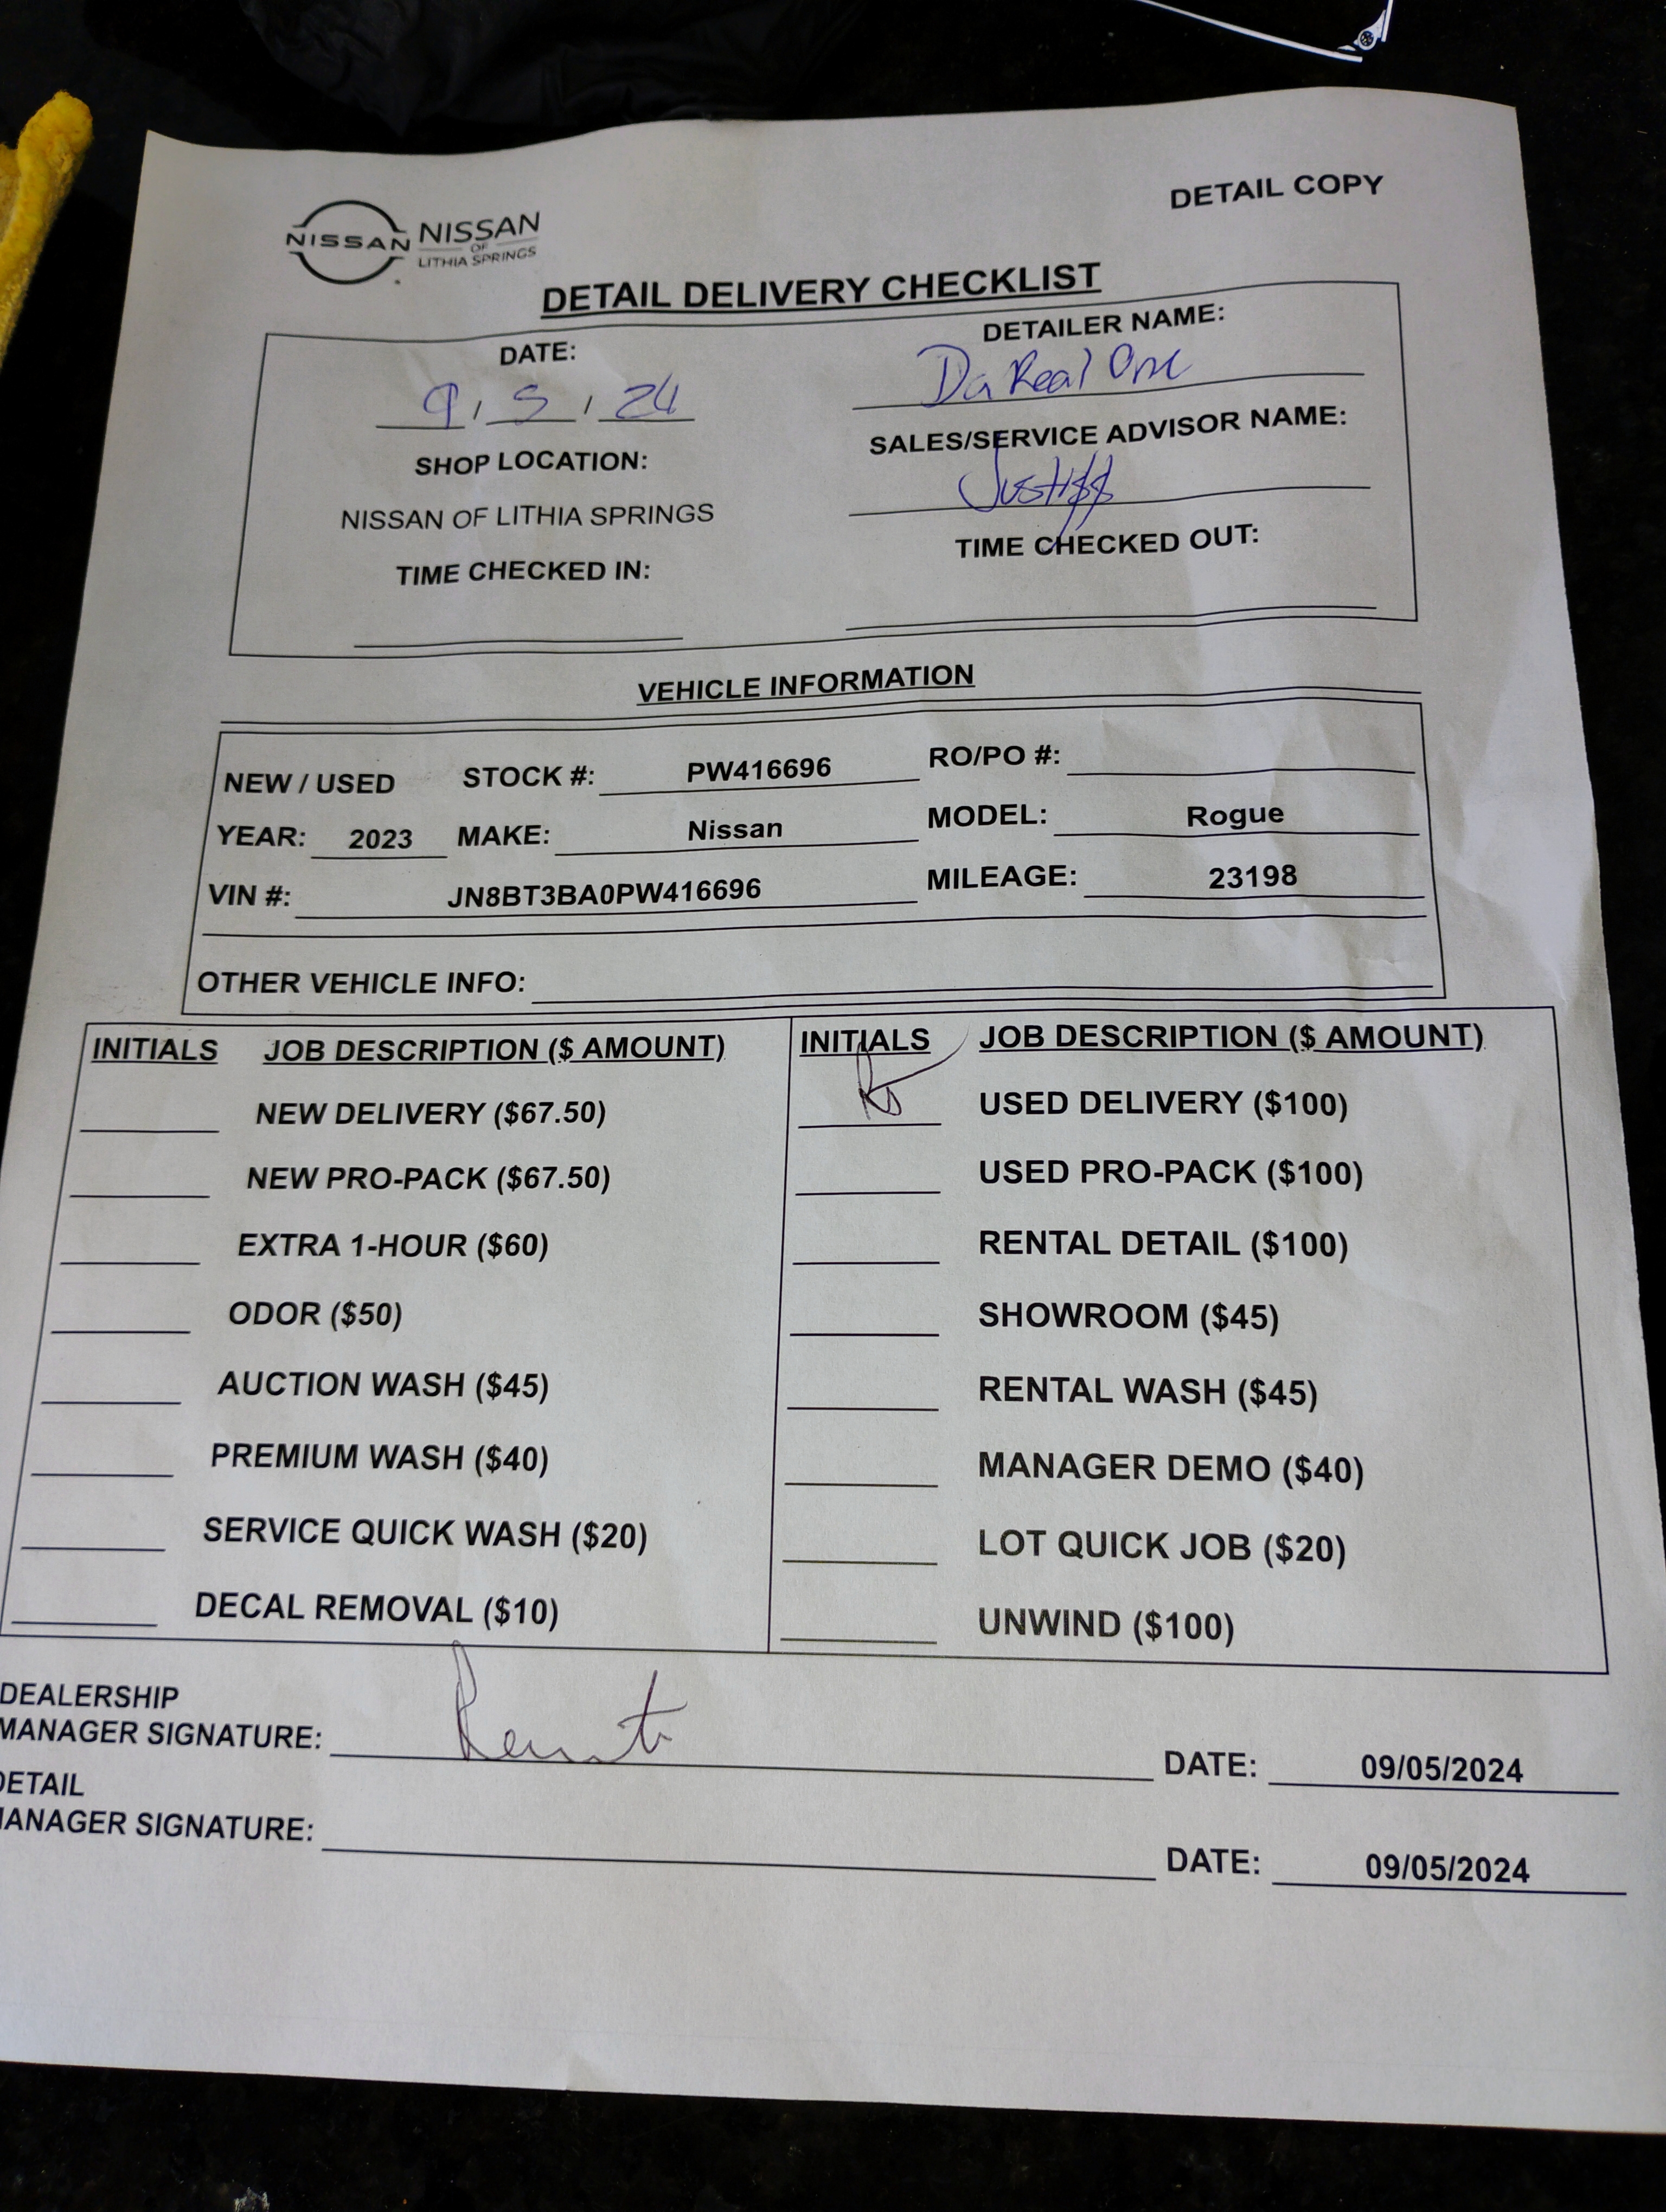 DETAIL COPY
NISSAN NISSAN
OF
LITHIA SPRINGS
DETAIL DELIVERY CHECKLIST
DATE:
9 / 5 / 24
DETAILER NAME:
Da Real One
SHOP LOCATION:
NISSAN OF LITHIA SPRINGS
SALES/SERVICE ADVISOR NAME:
TIME CHECKED IN:
TIME CHECKED OUT:
VEHICLE INFORMATION
NEW / USED STOCK #: PW416696 RO/PO #:
YEAR: 2023 MAKE: Nissan MODEL: Rogue
VIN #: JN8BT3BA0PW416696 MILEAGE: 23198
OTHER VEHICLE INFO:
INITIALS JOB DESCRIPTION ($ AMOUNT)
NEW DELIVERY ($67.50)
NEW PRO-PACK ($67.50)
EXTRA 1-HOUR ($60)
ODOR ($50)
AUCTION WASH ($45)
PREMIUM WASH ($40)
SERVICE QUICK WASH ($20)
DECAL REMOVAL ($10)
INITIALS JOB DESCRIPTION ($ AMOUNT)
USED DELIVERY ($100)
USED PRO-PACK ($100)
RENTAL DETAIL ($100)
SHOWROOM ($45)
RENTAL WASH ($45)
MANAGER DEMO ($40)
LOT QUICK JOB ($20)
UNWIND ($100)
DEALERSHIP
MANAGER SIGNATURE: DATE: 09/05/2024
DETAIL
MANAGER SIGNATURE: DATE: 09/05/2024